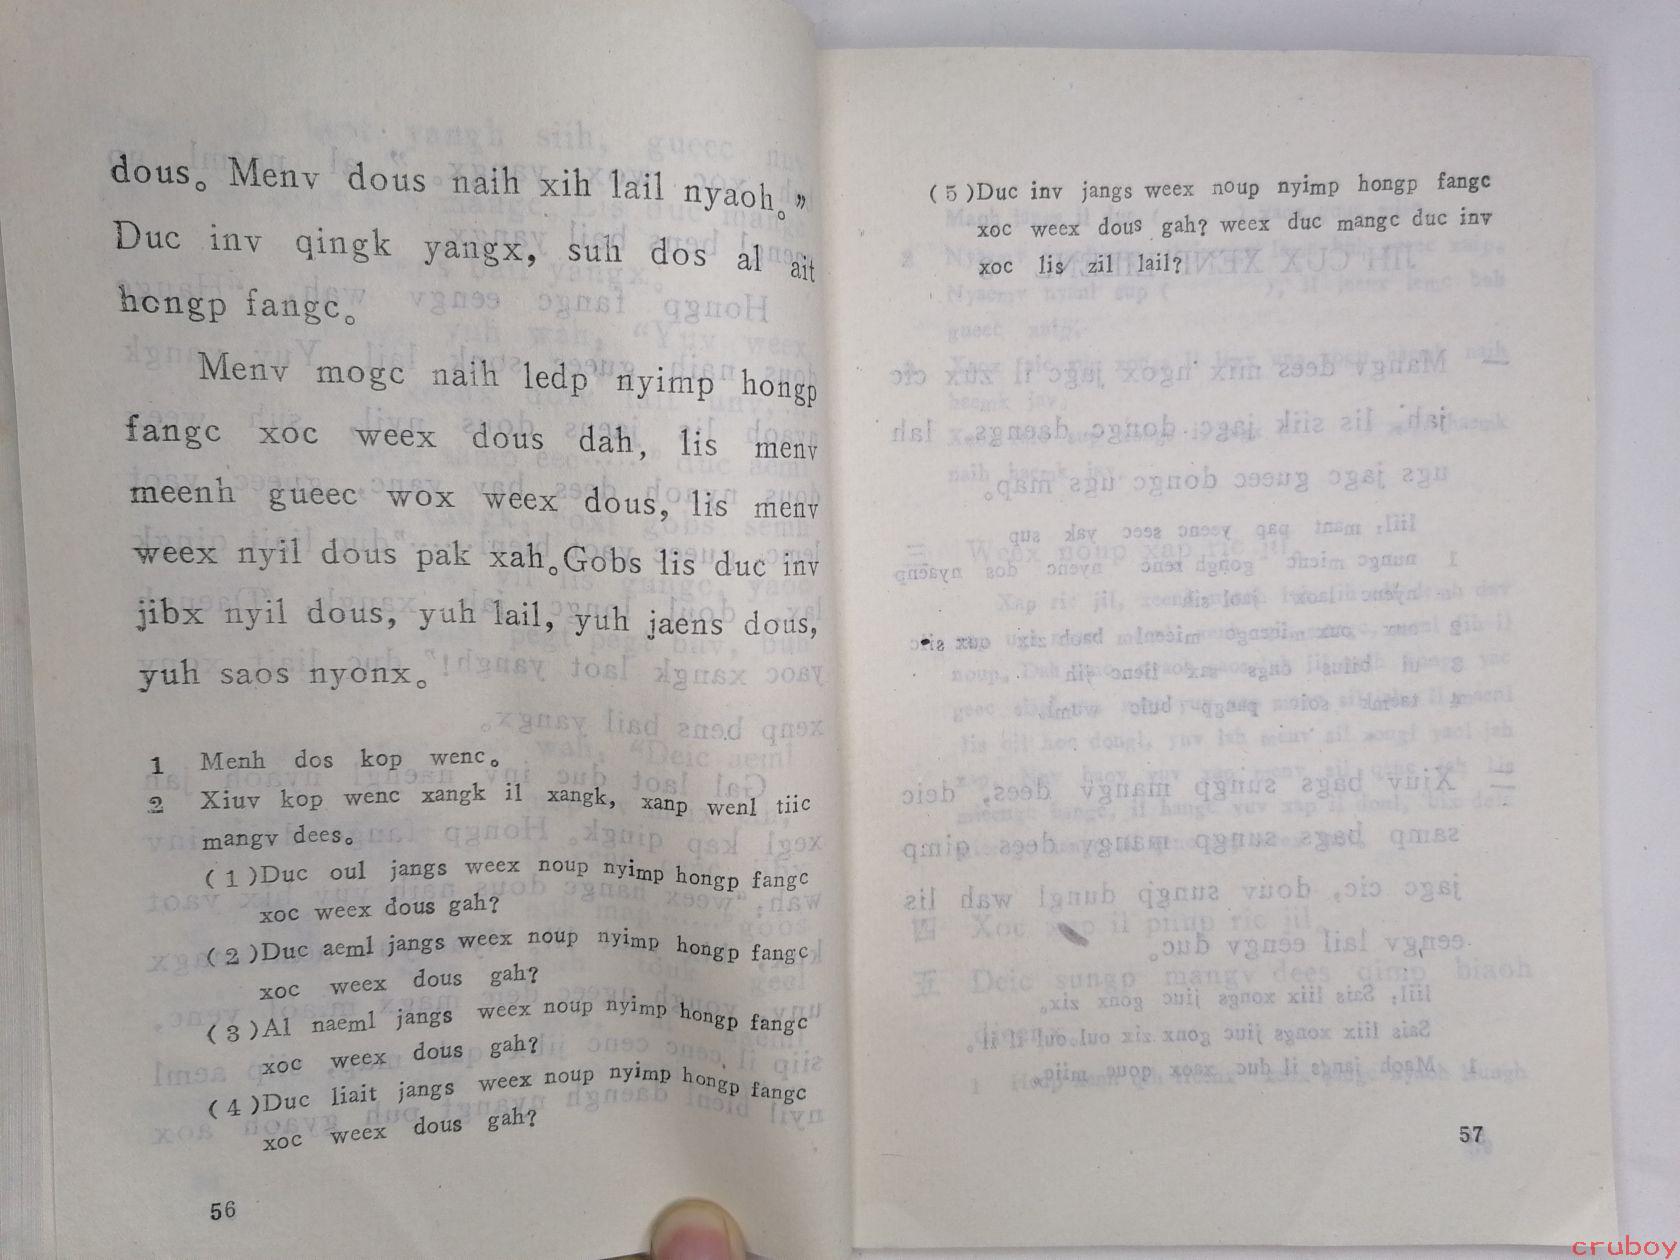 dous。Menv dous naih xih lail nyaoh。”
Duc inv qingk yangx, suh dos al ait
hongp fangc。
Menv mogc naih ledp nyimp hongp
fangc xoc weex dous dah, lis menv
meenh gueec wox weex dous, lis menv
weex nyil dous pak xah。Gobs lis duc inv
jibx nyil dous, yuh lail, yuh jaens dous,
yuh saos nyonx。
1 Menh dos kop wenc。
2 Xiuv kop wenc xangk il xangk, xanp wenl tiic
mangv dees。
(1)Duc oul jangs weex noup nyimp hongp fangc
xoc weex dous gah?
(2)Duc aeml jangs weex noup nyimp hongp fangc
xoc weex dous gah?
(3)Al naeml jangs weex noup nyimp hongp fangc
xoc weex dous gah?
(4)Duc liait jangs weex noup nyimp hongp fangc
xoc weex dous gah?
56
(5)Duc inv jangs weex noup nyimp hongp fangc
xoc weex dous gah? weex duc mangc duc inv
xoc lis zil lail?
57
cruboy